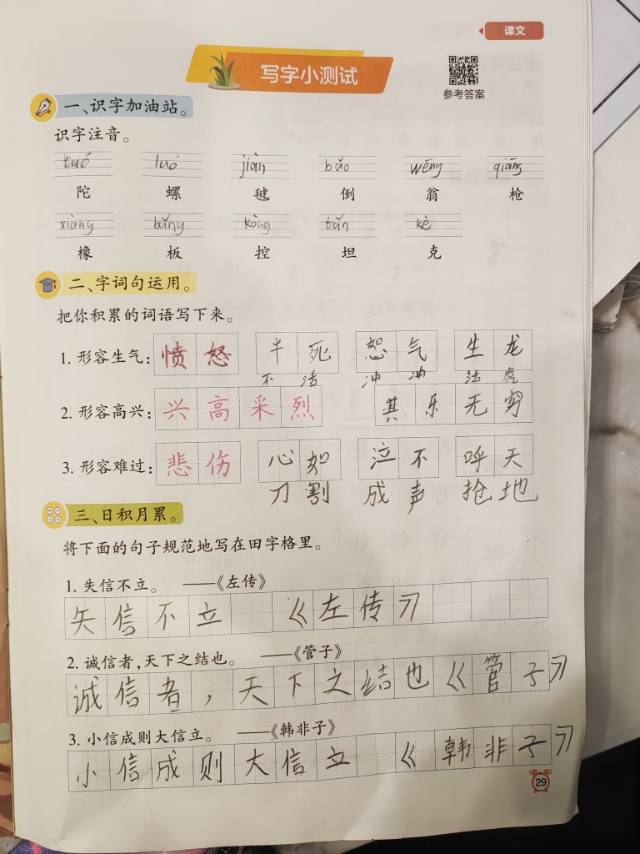 课文
写字小测试
参考答案
一、识字加油站。
识字注音。
tuó luó jiàn bǎo wēng qiāng
陀 螺 毽 倒 翁 枪
xiàng bǎng kòng tǎn kè
橡 板 控 坦 克
二、字词句运用。
把你积累的词语写下来。
1. 形容生气: 愤怒 半死 怨气 生龙
不活 冲冲 活虎
2. 形容高兴: 兴高采烈 其乐无穷
3. 形容难过: 悲伤 心如 泣不 呼天
刀割 成声 抢地
三、日积月累。
将下面的句子规范地写在田字格里。
1. 失信不立。 ——《左传》
失信不立 《左传》
2. 诚信者,天下之结也。 ——《管子》
诚信者,天下之结也《管子》
3. 小信成则大信立。 ——《韩非子》
小信成则大信立 《韩非子》
29